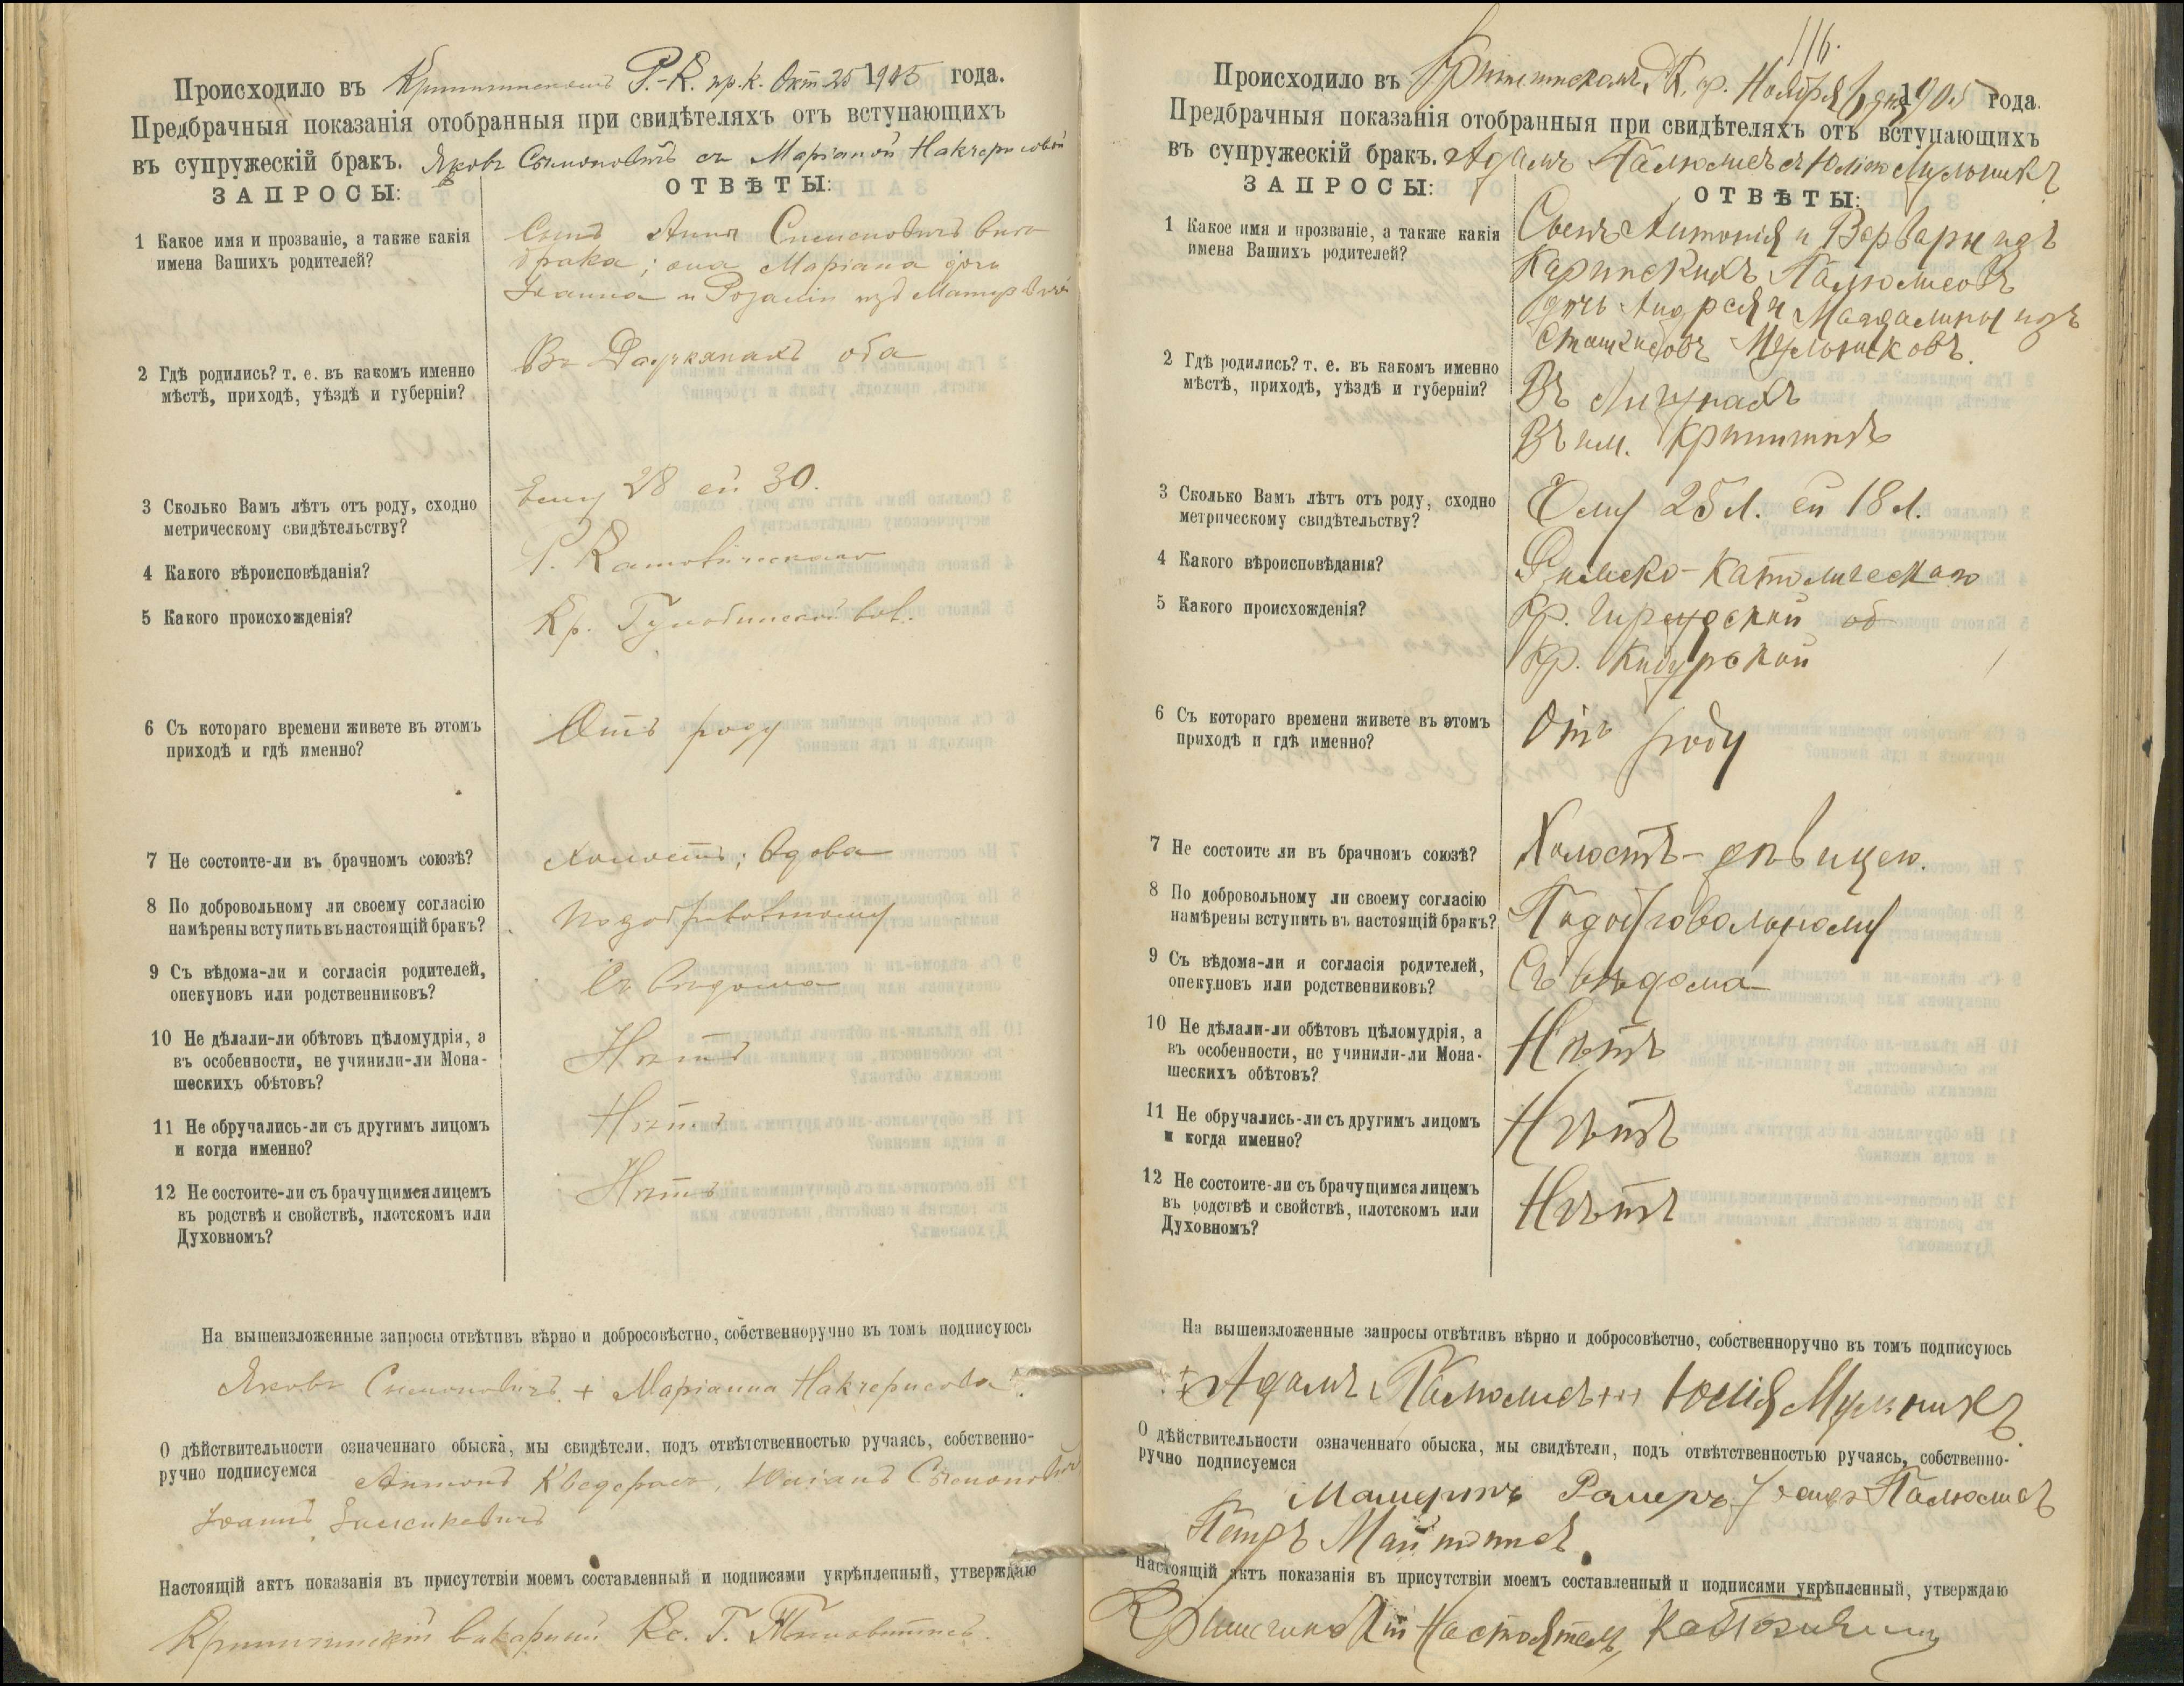 Происходило въ Кринчинскомъ Р.-К. пр.к. Окт 25 1905 года.
Предбрачныя показанія отобранныя при свидѣтеляхъ отъ вступающихъ
въ супружескій бракъ. Яковъ Сымоновичъ съ Маріаной Накчерисовой
ЗАПРОСЫ: ОТВѢТЫ:
1 Какое имя и прозваніе, а также какія
имена Вашихъ родителей?
Сынъ Анны Сымоновичъ внѣ
брака; она Маріана дочь
Іоанна и Розаліи изъ
2 Гдѣ родились? т. е. въ какомъ именно
мѣстѣ, приходѣ, уѣздѣ и губерніи?
Въ оба
3 Сколько Вамъ лѣтъ отъ роду, сходно
метрическому свидѣтельству?
Ему 28 ей 30.
4 Какого вѣроисповѣданія?
Р. Католическаго
5 Какого происхожденія?
Кр. вол.
6 Съ котораго времени живете въ этомъ
приходѣ и гдѣ именно?
Отъ роду
7 Не состоите-ли въ брачномъ союзѣ?
Холостъ; Вдова
8 По добровольному ли своему согласію
намѣрены вступить въ настоящій бракъ?
По добровольному
9 Съ вѣдома-ли и согласія родителей,
опекуновъ или родственниковъ?
Съ вѣдома
10 Не дѣлали-ли обѣтовъ цѣломудрія, а
въ особенности, не учинили-ли Мона-
шескихъ обѣтовъ?
Нѣтъ
11 Не обручались-ли съ другимъ лицомъ
и когда именно?
Нѣтъ
12 Не состоите-ли съ брачущимся лицемъ
въ родствѣ и свойствѣ, плотскомъ или
Духовномъ?
Нѣтъ
На вышеизложенные запросы отвѣтивъ вѣрно и добросовѣстно, собственноручно въ томъ подписуюсь
Яковъ Сымоновичъ + Маріанна Накчерисова
О дѣйствительности означеннаго обыска, мы свидѣтели, подъ отвѣтственностью ручаясь, собственно-
ручно подписуемся Антонъ Кведерасъ, Юліанъ Сымоновичъ
Іоаннъ
Настоящій актъ показанія въ присутствіи моемъ составленный и подписями укрѣпленный, утверждаю
Кринчинскій викарный Кс. Г.
116.
Происходило въ Кринчинскомъ Р.К. пр. Ноября 6 дня 1905 года.
Предбрачныя показанія отобранныя при свидѣтеляхъ отъ вступающихъ
въ супружескій бракъ. Адамъ Палюлисъ съ Юліею Мульникъ
ЗАПРОСЫ: ОТВѢТЫ:
1 Какое имя и прозваніе, а также какія
имена Вашихъ родителей?
Сынъ Антонія и Варвары изъ
Палюлисовъ
дочь Андрея и Магдалины изъ
Мульниковъ.
2 Гдѣ родились? т. е. въ какомъ именно
мѣстѣ, приходѣ, уѣздѣ и губерніи?
Въ
Въ им. Кринчинѣ
3 Сколько Вамъ лѣтъ отъ роду, сходно
метрическому свидѣтельству?
Ему 25 л. ей 18 л.
4 Какого вѣроисповѣданія?
Римско-Католическаго
5 Какого происхожденія?
Кр. Гирсудской об
Кр. Кибурской
6 Съ котораго времени живете въ этомъ
приходѣ и гдѣ именно?
Отъ роду
7 Не состоите ли въ брачномъ союзѣ?
Холостъ - дѣвицею.
8 По добровольному ли своему согласію
намѣрены вступить въ настоящій бракъ?
По добровольному
9 Съ вѣдома-ли и согласія родителей,
опекуновъ или родственниковъ?
Съ вѣдома
10 Не дѣлали-ли обѣтовъ цѣломудрія, а
въ особенности, не учинили-ли Мона-
шескихъ обѣтовъ?
Нѣтъ
11 Не обручались-ли съ другимъ лицомъ
и когда именно?
Нѣтъ
12 Не состоите-ли съ брачущимся лицемъ
въ родствѣ и свойствѣ, плотскомъ или
Духовномъ?
Нѣтъ
На вышеизложенные запросы отвѣтивъ вѣрно и добросовѣстно, собственноручно въ томъ подписуюсь
+++ Адамъ Палюлисъ +++ Юлія Мульникъ
О дѣйствительности означеннаго обыска, мы свидѣтели, подъ отвѣтственностью ручаясь, собственно-
ручно подписуемся
Палюлисъ
Петръ
Настоящій актъ показанія въ присутствіи моемъ составленный и подписями укрѣпленный, утверждаю
Кринчинскій Настоятель